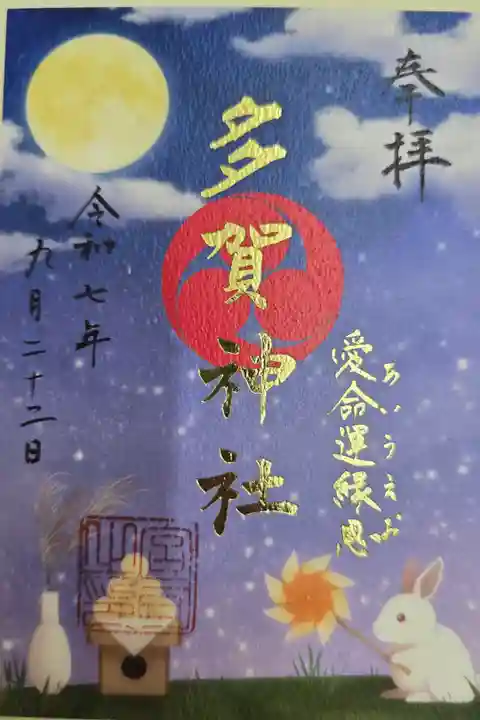 奉拝
愛命運縁恩
あいうえお
多賀神社
令和七年
九月二十二日